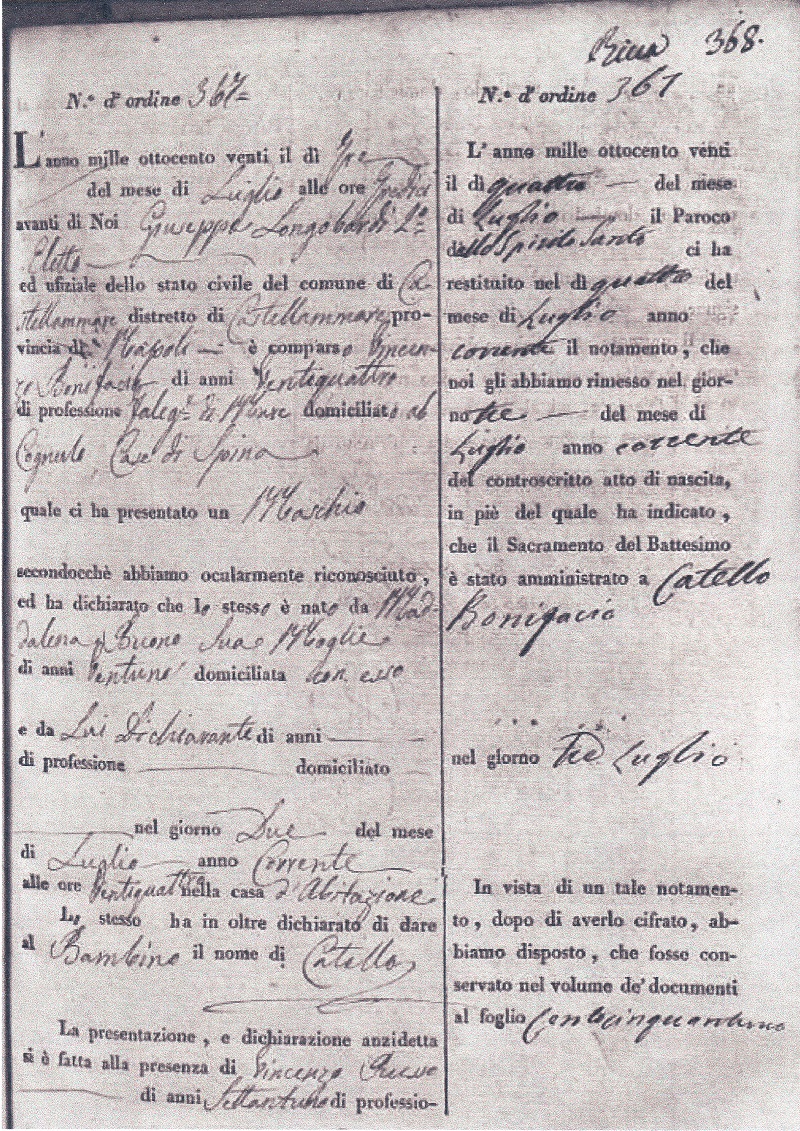 368.
N.º d'ordine 367
L'anno mille ottocento venti il dì Tre
del mese di Luglio alle ore Tredici
avanti di Noi Giuseppe Longobardi 2.º
Eletto
ed ufiziale dello stato civile del comune di Ca-
stellammare distretto di Castellammare pro-
vincia di Napoli è comparso Vincen-
zo Bonifacio di anni Ventiquattro
di professione di Mare domiciliato al
Cognulo, Case di Spina
quale ci ha presentato un Maschio
secondocchè abbiamo ocularmente riconosciuto,
ed ha dichiarato che lo stesso è nato da Mad-
dalena Buono Sua Moglie
di anni Ventuno domiciliata con esso
e da Lui Dichiarante di anni
di professione domiciliato
nel giorno Due del mese
di Luglio anno Corrente
alle ore Ventiquattro nella casa d'Abitazione
Lo stesso ha in oltre dichiarato di dare
al Bambino il nome di Catello
La presentazione, e dichiarazione anzidetta
si è fatta alla presenza di Vincenzo Russo
di anni Settantuno di professio-
N.º d'ordine 367
L'anno mille ottocento venti
il dì quattro del mese
di Luglio il Paroco
dello Spirito Santo ci ha
restituito nel dì quattro del
mese di Luglio anno
corrente il notamento, che
noi gli abbiamo rimesso nel gior-
no tre del mese di
Luglio anno corrente
del controscritto atto di nascita,
in piè del quale ha indicato,
che il Sacramento del Battesimo
è stato amministrato a Catello
Bonifacio
nel giorno tre Luglio
In vista di un tale notamen-
to, dopo di averlo cifrato, ab-
biamo disposto, che fosse con-
servato nel volume de' documenti
al foglio Centocinquantuno